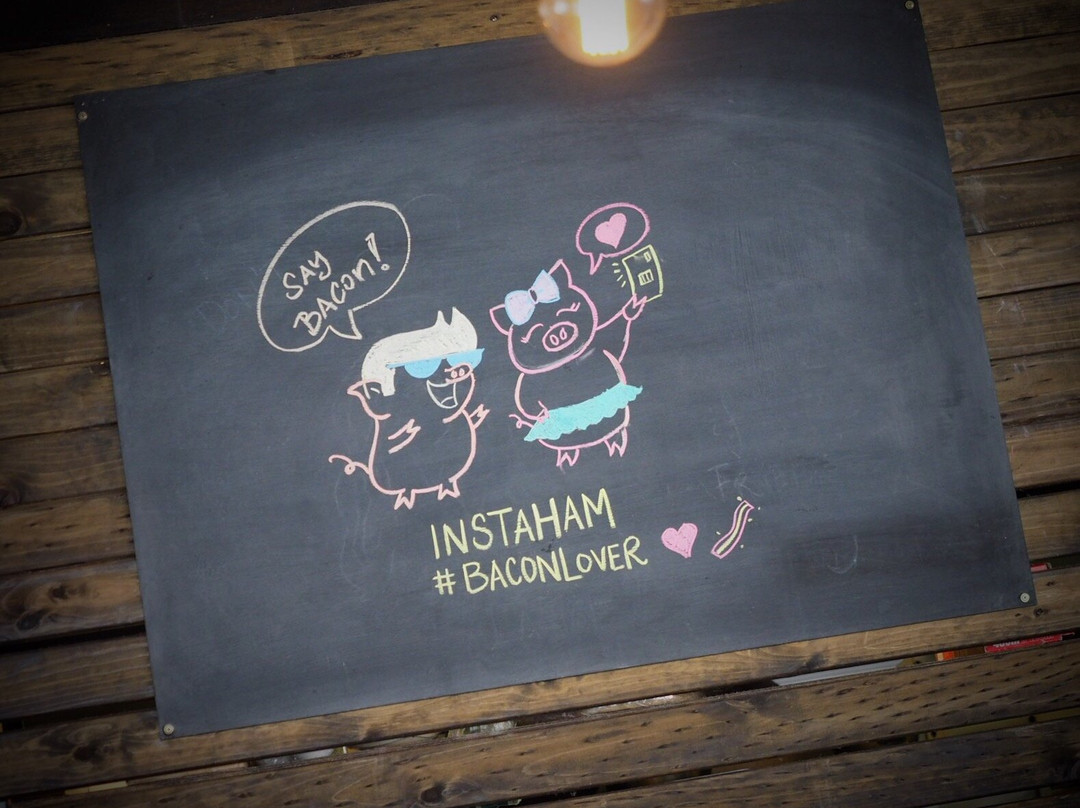 SAY
BACON!
INSTAHAM
#BACONLOVER